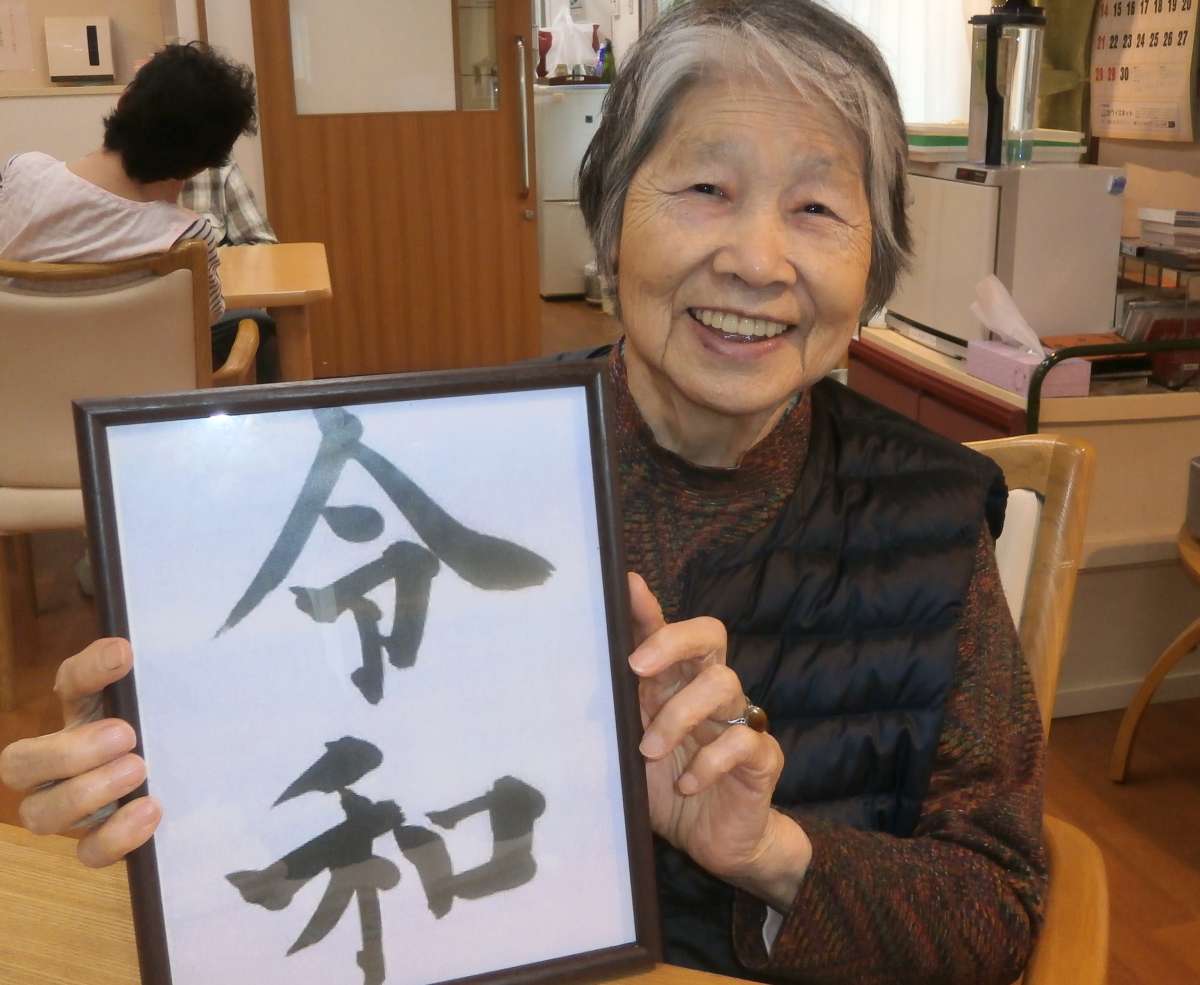 令
和
14 15 16 17 18 19 20
21 22 23 24 25 26 27
28 29 30